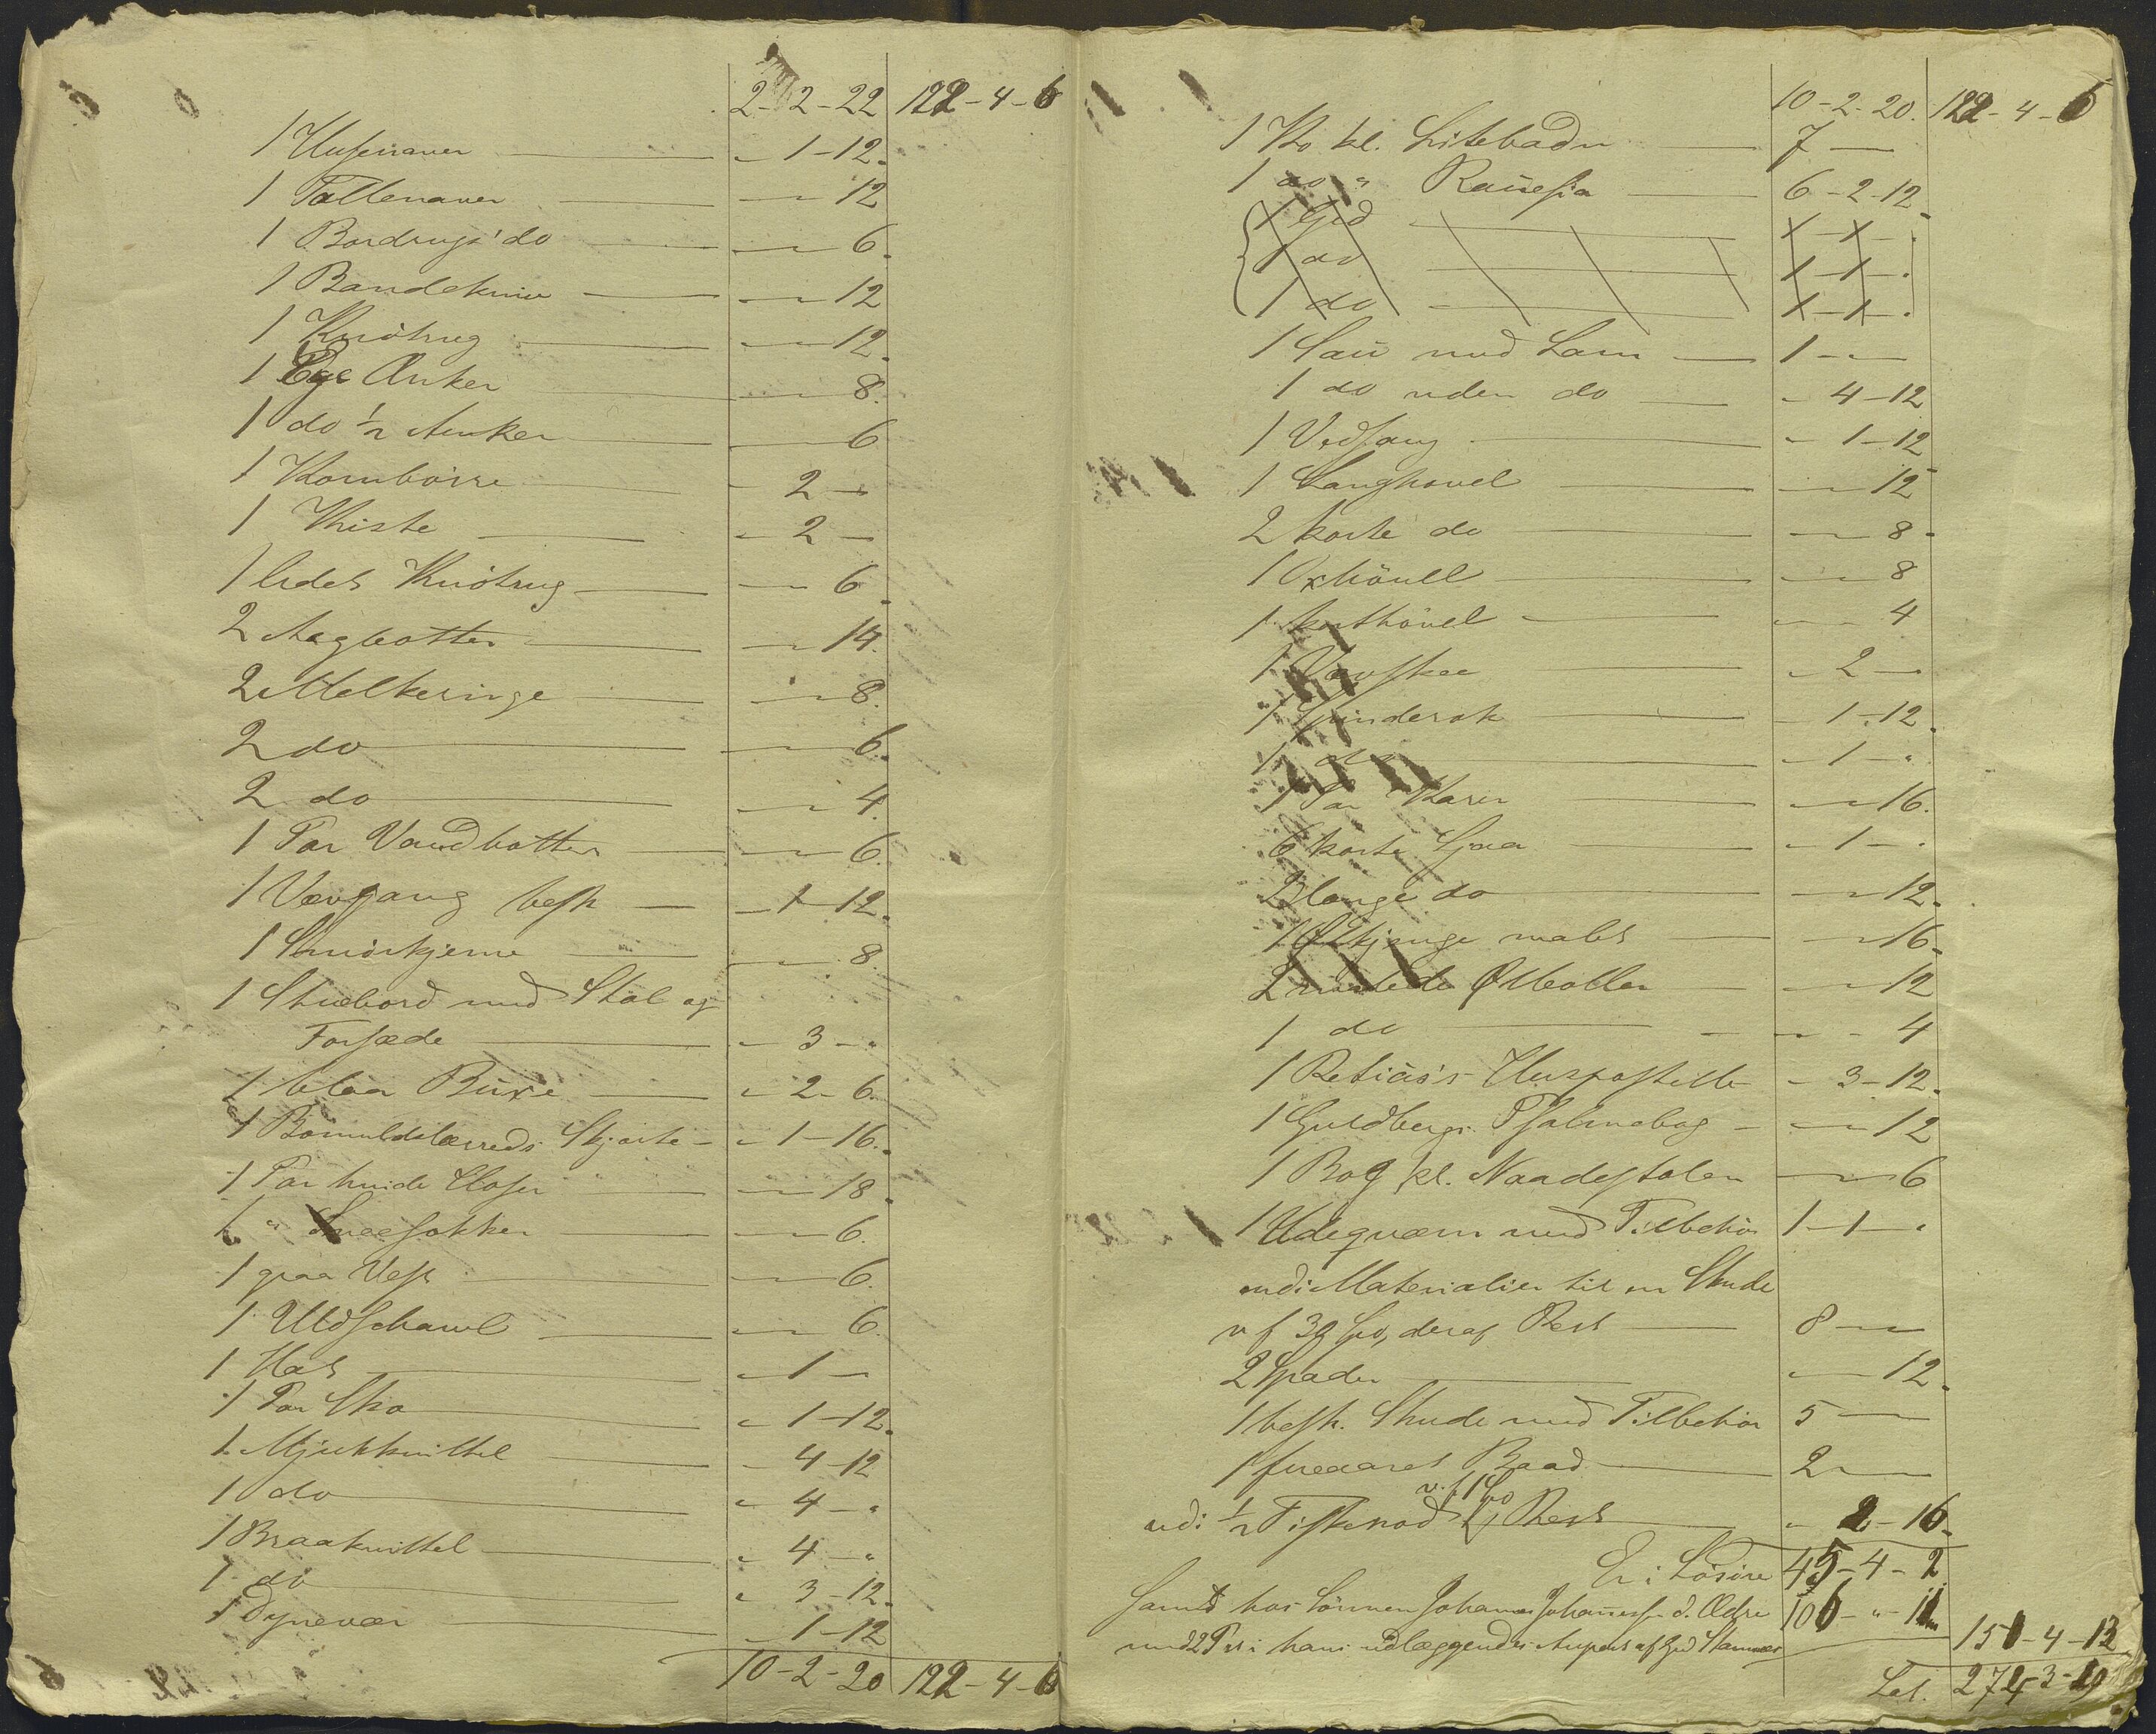 2-2-22 122-4-6
1 Husenaver - 1-12.
1 Tallenaver - 12
1 Bordrugs' do - 6.
1 Bandekniv - 12
1 Knötrug - 12.
1 Ege Anker - 8.
1 do ½ Anker - 6
1 Kornbörre - 2 -
1 Kiste - 2 -
1 lidet Knötrug - 6.
2 Aagbotter - 14.
2 Melkeringe - 8.
2 do - 6.
2 do - 4.
1 Par Vandbotter - 6.
1 Vævgang besk - 1-12.
1 Smörkjerne - 8.
1 Stuebord med Stol og
Forsæde - 3 -
1 blaa Buxe - 2-6.
1 Bomuldslærreds Skjorte - 1-16.
1 Par hvide Hoser - 18.
1 " Sneesokker - 6.
1 graa Vest - 6.
1 Uldschawl - 6.
1 Hat - 1 -
1 Par Sko - 1-12.
1 Mjukknittel - 4-12
1 do - 4 -
1 Braaknittel - 4 -
1 do - 3-12.
1 Dynevær - 1-12
10-2-20 122-4-6
10-2-20. 122-4-6
1 Ko kl. Litebadn 7 -
1 do " Rauesia 6-2-12.
1 Ged 1-1-.
1 do 1-1-.
1 do 1-1-.
1 Sau med Lam 1 -
1 do uden do - 4-12
1 Vedsaug - 1-12
1 Langhövel - 12
2 korte do - 8
1 Oxhövell - 8
1 korthövel - 4
1 Vævskee - 2 -
1 Spinderok - 1-12.
1 do - 1 -
1 Par Karer - 16.
6 korte Ljaa - 1 -
2 lange do - 12.
1 Ølkjenge malet - 16.
2 malede Ølboller - 12
1 do - 4
1 Retius's Huspostille - 3-12.
1 Guldbergs Psalmebog - 12
1 Bog kl. Naadestolen - 6
1 Udeqværn med Tilbehör 1-1-
udi Materialier til en Skude
v f 30 Spd, deraf Rest 8 -
2 Spader - 12.
1 besk. Skude med Tilbehör 5 -
1 fireaaret Baad 2 -
v. f. 1 Spd
udi ½ Fiskenod Rest - 2-16.
Er i Lösöre 45-4-2
Samt hos Sönnen Johannes Johanness. d. Ældre 106-"-11
med 2 Par i hans udlæggendes Anpart af Gd Stamnes 151-4-13
Lat. 274-3-19